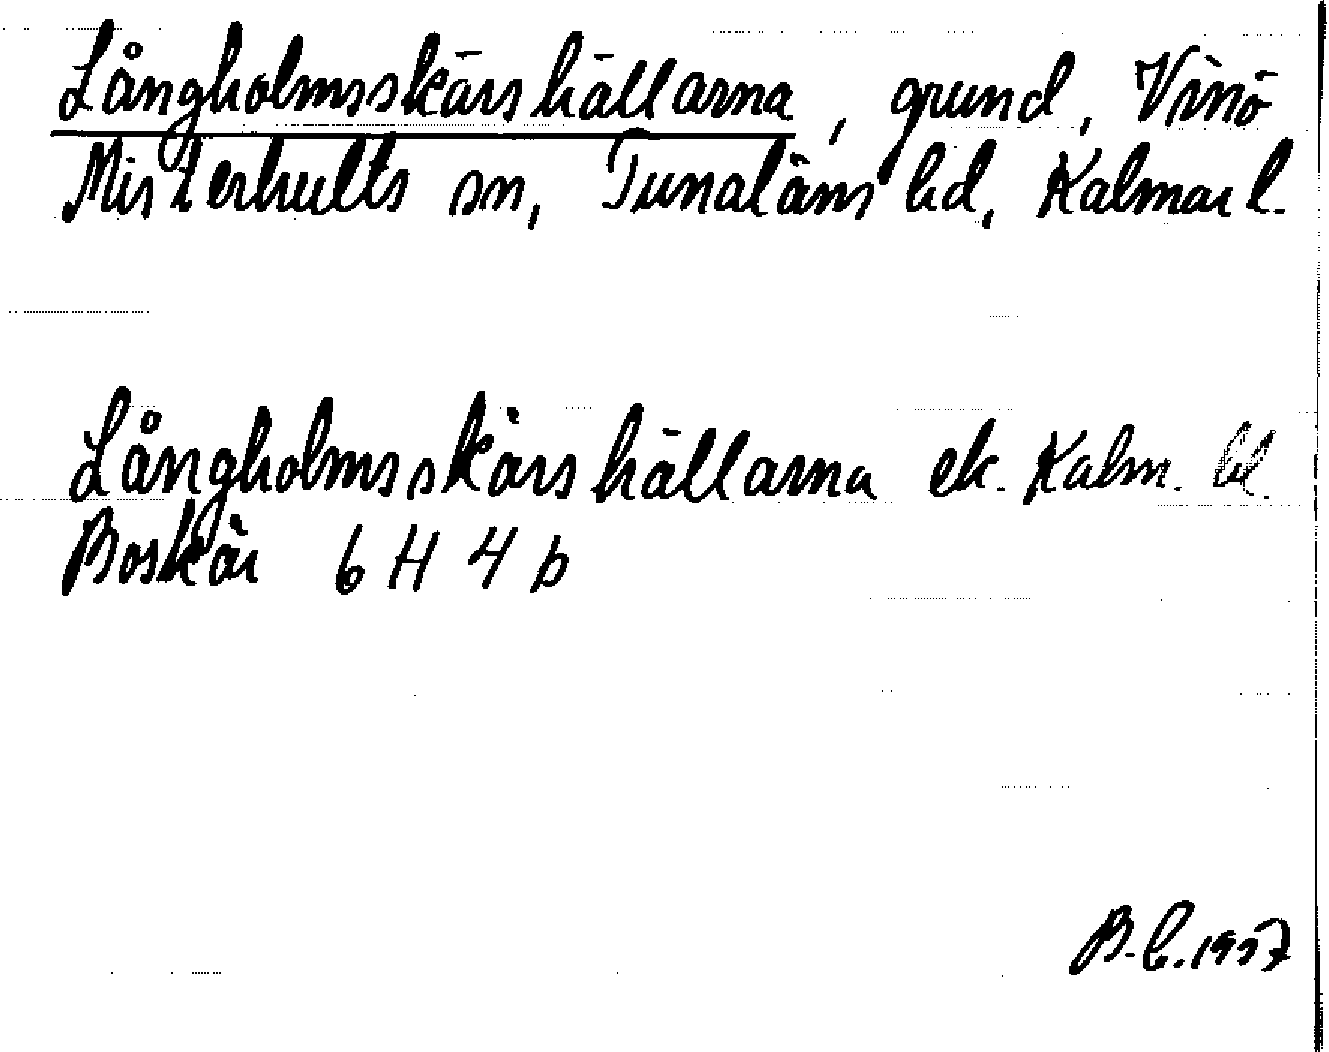 Långholmsskärshällarna, grund, Vinö
Misterhults sn, Tunaläns hd, Kalmar l.
Långholmsskärshällarna ek. Kalm. bl.
Boskär 6 H 4 b
B.L. 1957